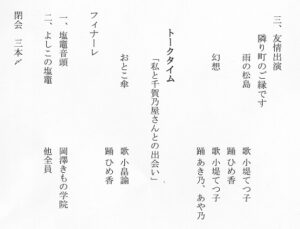 三、友情出演
隣り町のご縁です
雨の松島 歌 小堤てつ子
踊 ひめ香
幻想 歌 小堤てつ子
踊 あき乃、あや乃
トークタイム
「私と千賀乃屋さんとの出会い」
おとこ傘 歌 小畠諭
踊 ひめ香
フィナーレ
一、塩竈音頭 岡澤きもの学院
二、よしこの塩竈 他全員
閉会 三本〆